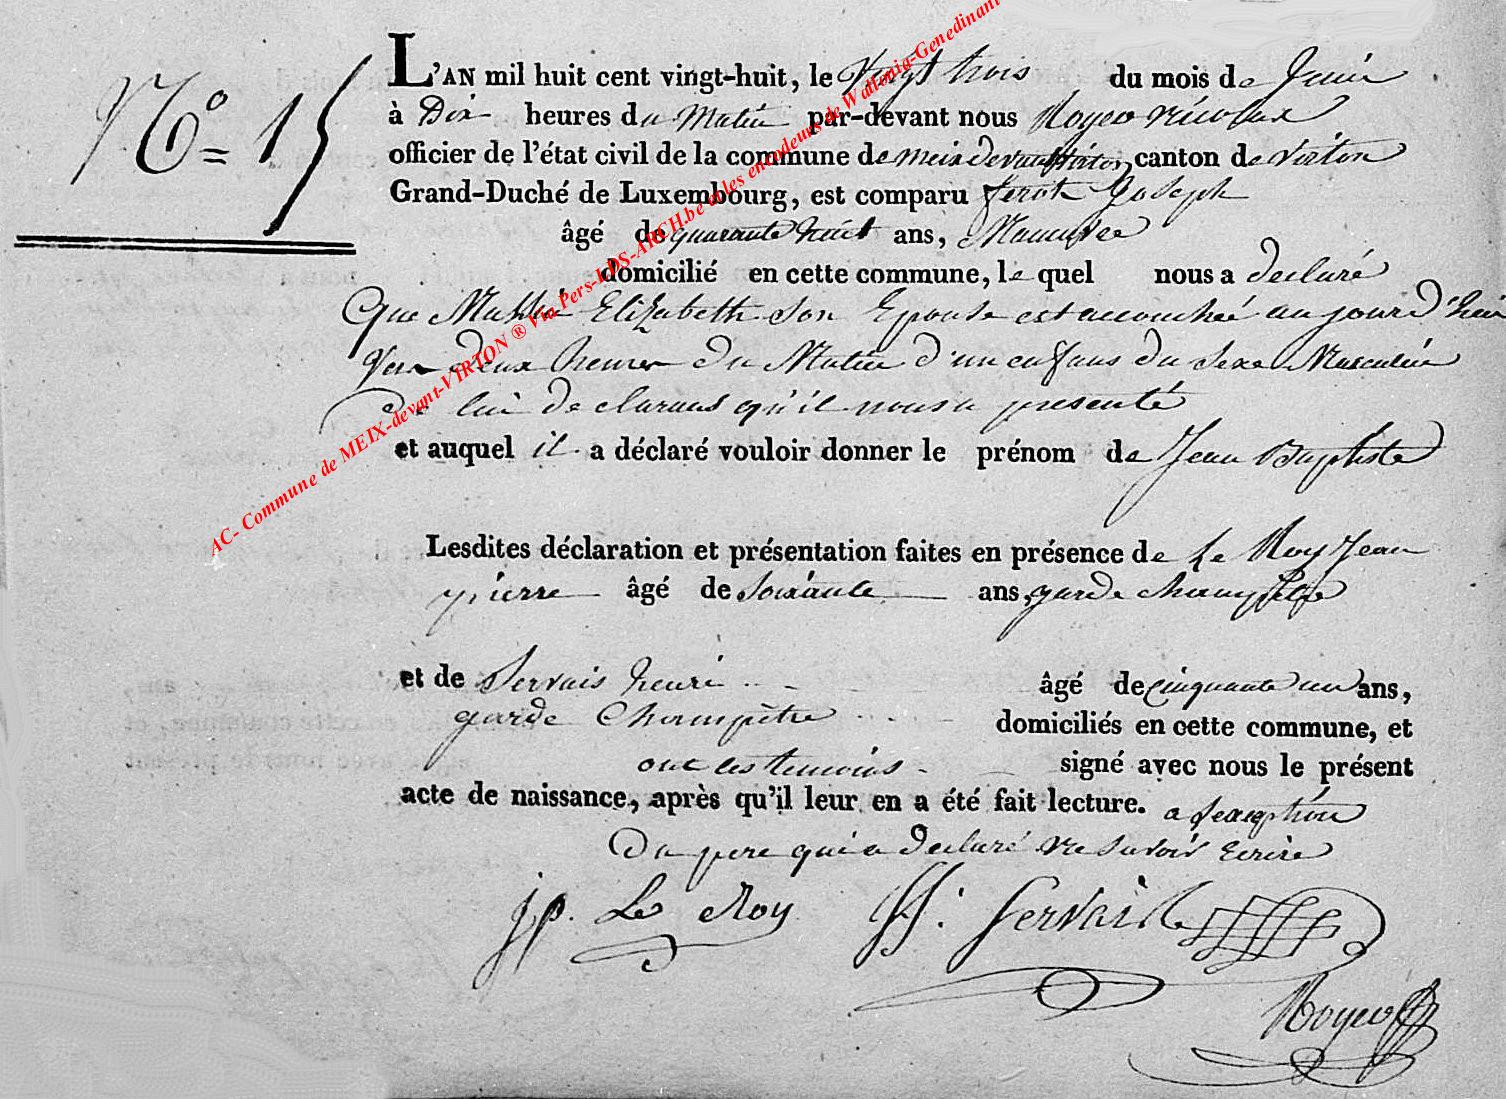 N.º 15
L'AN mil huit cent vingt-huit, le Vingt trois du mois de Juin
à Dix heures du Matin par-devant nous Royeo nicolas
officier de l'état civil de la commune de meix devant Virton canton de Virton
Grand-Duché de Luxembourg, est comparu ferot Joseph
âgé de quarante huit ans, Manuvre
domicilié en cette commune, le quel nous a declaré
Que Elizabeth Son Epouse est accouchée au jour d'hui
Vers deux heures du Matin d'un enfans du Sexe Masculin
de lui declarans qu'il nous a presenté
et auquel il a déclaré vouloir donner le prénom de Jean Baptiste
Lesdites déclaration et présentation faites en présence de Le Roy Jean
pierre âgé de Soixante ans, garde champêtre
et de Servais henri âgé de cinquante un ans,
garde Champêtre domiciliés en cette commune, et
ont les temoins signé avec nous le présent
acte de naissance, après qu'il leur en a été fait lecture. a lexeption
Du pere qui a declaré ne Savoir Ecrire
jp. Le Roy H. Servais
Royeo
AC- Commune de MEIX-devant-VIRTON ® Via Pers-LDS-ARCH.be et les encodeurs de Wallonia-Genedinant